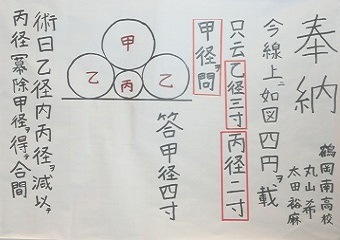 奉納
今線上ニ如図四円ヲ載
只云乙径三寸丙径二寸
甲径ヲ問
答甲径四寸
術曰乙径内丙径ヲ減以テ
丙径冪除甲径ヲ得テ合問
鶴岡南高校
丸山希
太田裕麻
甲
乙
丙
乙